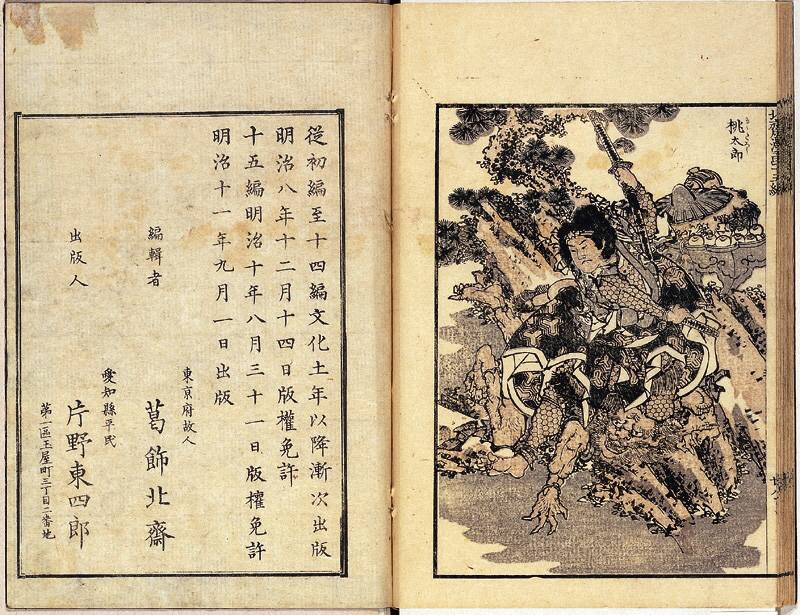 桃太郎
從初編至十四編文化土年以降漸次出版
明治八年十二月十四日版權免許
十五編明治十年八月三十一日版權免許
明治十一年九月一日出版
東京府故人
編輯者 葛飾北齋
愛知縣平民
出版人 片野東四郎
第一區玉屋町三丁目二番地